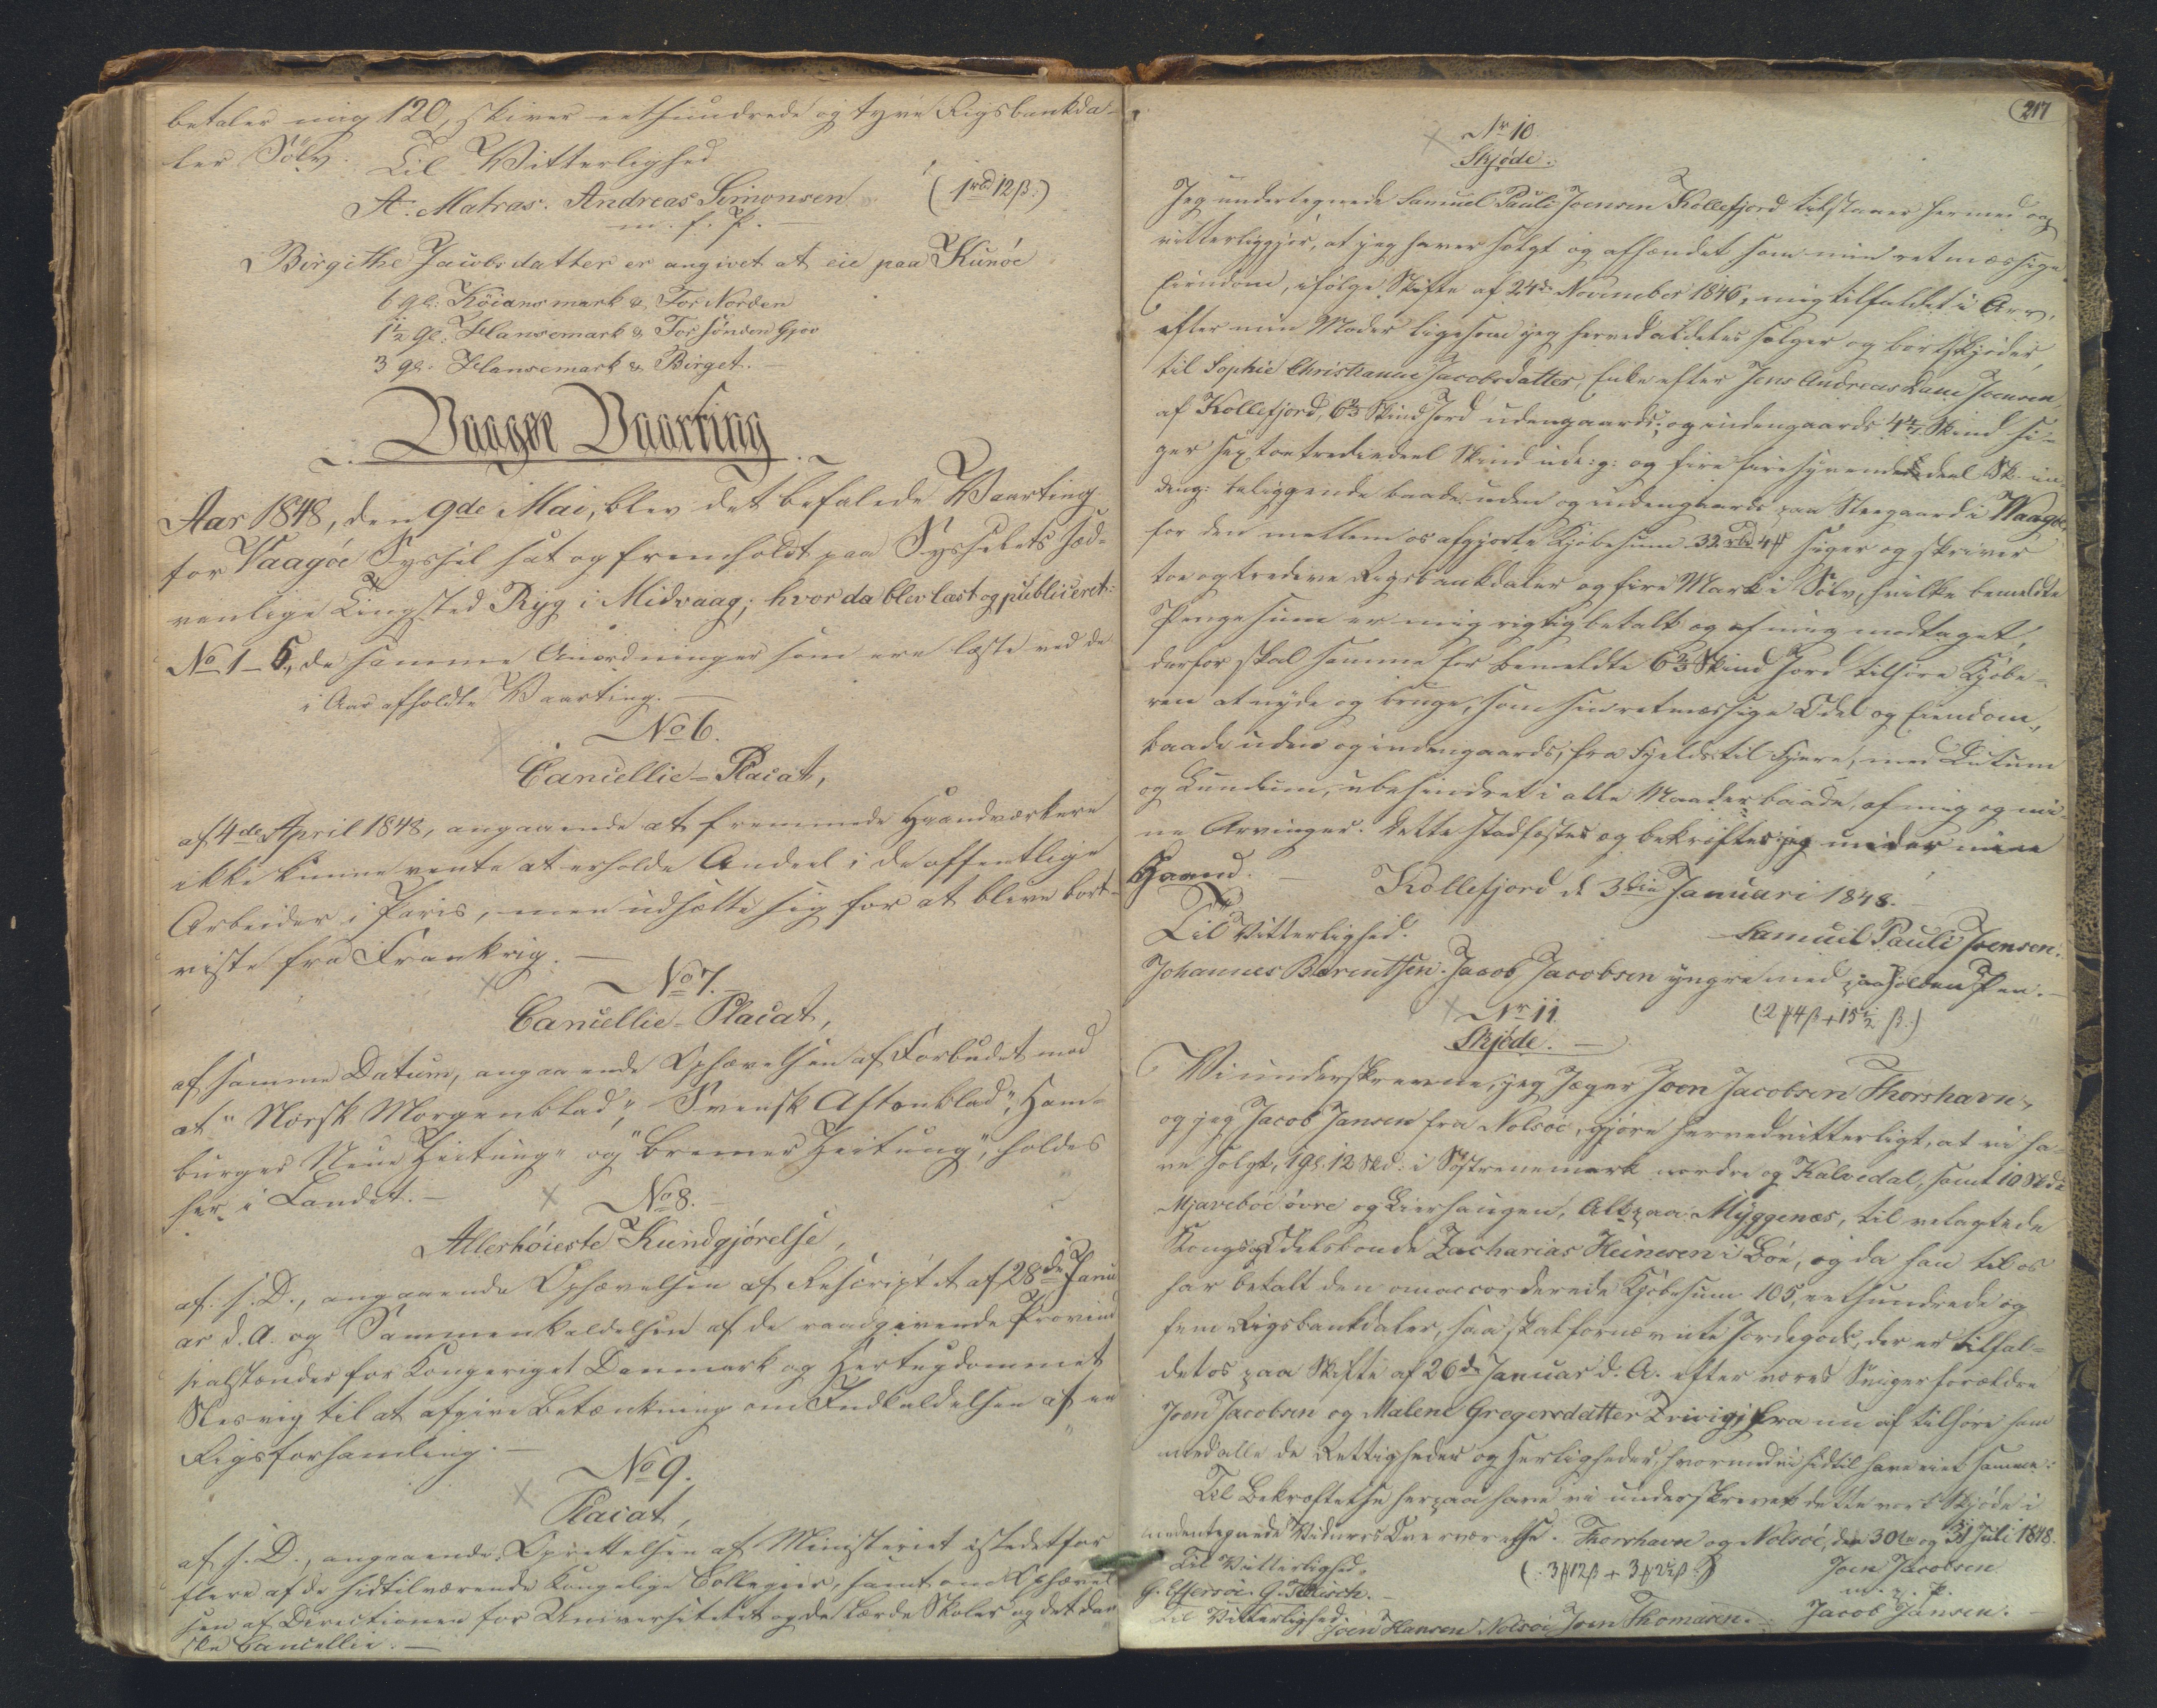 betaler mig 120, skiver eethundrede og tyve Rigsbankda-
ler Sølv. Til Vitterlighed
A. Matras. Andreas Simonsen (1rbd 12 ß.)
m. f. P.
Birgithe Jacobsdatter er angivet at eie paa Kunöe
6 gl: Köians mark & For Norden
1 1/2 gl: Hansemark & For sönden Gjov
3 gl. Hansemark & Birget.
Vaagøe Vaarting
Aar 1848, den 9de Mai, blev det befalede Vaarting
for Vaagöe Syssel sat og fremholdt paa Sysselets sæd-
vanlige Tingsted Ryg i Midvaag; hvor da blev læst og publiceret:
No 1-5, de samme Anordninger som ere læste ved de
i Aar afholdte Vaarting.
No 6.
Cancellie-Placat,
af 4de April 1848, angaaende at fremmede Haandværkere
ikke kunne vente at erholde Andeel i de offentlige
Arbeider i Paris, men udsætte sig for at blive bort-
viste fra Frankrig.
No 7.
Cancellie-Placat,
af samme Datum, angaaende Ophævelsen af Forbudet mod
at "Norsk Morgenblad", "Svensk Aftonblad", Ham-
burger Neue Zeitung" og "Bremer Zeitung", holdes
her i Landet.
No 8.
Allerhöieste Kundgjørelse,
af s. D., angaaende Ophævelsen af Rescriptet af 28de Janu
ar d. A. og Sammenkaldelsen af de raadgivende Provind
sialstænder for Kongeriget Danmark og Hertugdømmet
Slesvig til at afgive Betænkning om Indkaldelsen af en
Rigsforsamling.
No 9.
Placat,
af s. D., angaaende Oprettelsen af Ministeriet istedetfor
flere af de hidtilværende Kongelige Collegier, samt om Ophævel
sen af Directionen for Universitetet og de lærde Skoler og det dan
ske Cancellie.
217
Nr 10.
Skjøde.
Jeg undertegnede Samuel Pauli Joensen Kollefjord tilstaaer hermed og
vitterliggjör, at jeg haver solgt og afhændet som min retmæssige
Eiendom, ifölge Skifte af 24de November 1846, mig tilfaldet i Arv,
efter min Moder ligesom jeg herved aldeles sælger og bortskjöder
til Sophie Christianne Jacobsdatter, Enke efter Jens Andreas Joensen
af Kollefjord, 6 2/3 Skind Jord udengaards; og indengaards 4 4/7 Skind si-
ger sex totrediedeel Skind ude: g: og fire fire syvendedeel Sk. in-
deng: beliggende baade uden og indengaards paa Steegaard i Waagöe
for den mellem os afgjorte Kjöbesum 32 rbd 4 # siger og skriver
toe og tredeve Rigsbankdaler og fire Mark i Sölv, hvilke bemeldte
Pengesum er mig rigtig betalt og af mig modtaget,
derfor skal samme for bemeldte 6 2/3 Skind Jord tilhöre Kjöbe-
ren at nyde og bruge, som sin retmæssige Odel og Eiendom,
baade uden og indengaards, fra Fjelds til Fjære, med Lutum
og Lundum, ubehindret i alle Maader baade af mig og mi-
ne Arvinger. Dette stadfæstes og bekræftes jeg under min
Haand.
Kollefjord d. 3die Januari 1848.
Til Vitterlighed.
Samuel Pauli Joensen.
Johannes Barentsen. Jacob Jacobsen yngre med paaholden Pen.
Nr 11. (2 # 4 ß + 15 1/2 ß.)
Skjöde.
Vi underskrevne, jeg Jæger Joen Jacobsen Thorshavn,
og jeg Jacob Jansen fra Nolsöe, gjöre herved vitterligt, at vi ha-
ve solgt, 1 gl. 12 Skd: i Söstrenemark nordre og Kalvedal, samt 10 Skd i
Mjaveboe övre og Lierhaugen, Alt paa Myggenæs, til velagtede
Kongs og Odelsbonde Zacharias Heinesen i Böe, og da han til os
har betalt den omaccorderede Kjöbesum 105, eethundrede og
fem Rigsbankdaler, saa skal fornævnte Jordegods, der er tilfal-
det os paa Skifte af 26de Januar d. A. efter vores Svigerforældre
Joen Jacobsen og Malene Gregersdatter fra nu af tilhøre ham
med alle de Rettigheder og Herligheder, hvormed vi hidtil have eiet samme:
Til Bekræftelse herpaa have vi underskrevet dette vort Skjöde i
nedentegnede Vidners Overværelse. Thorshavn og Nolsöe, den 30te og 31 Juli 1848.
Til Vitterlighed. (: 3 # 12 ß + 3 # 2 1/2 ß :) Joen Jacobsen
H. Effersöe. G. Tillisch. m. p. P.
Til Vitterlighed. Joen Hansen Nolsöe Joen Thomasen. Jacob Jansen.